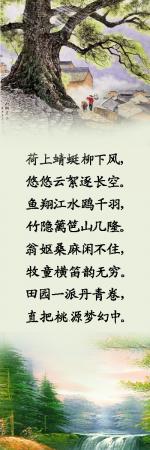 荷上蜻蜓柳下风，
悠悠云絮逐长空。
鱼翔江水鸥千羽，
竹隐篱笆山几隆。
翁妪桑麻闲不住，
牧童横笛韵无穷。
田园一派丹青卷，
直把桃源梦幻中。